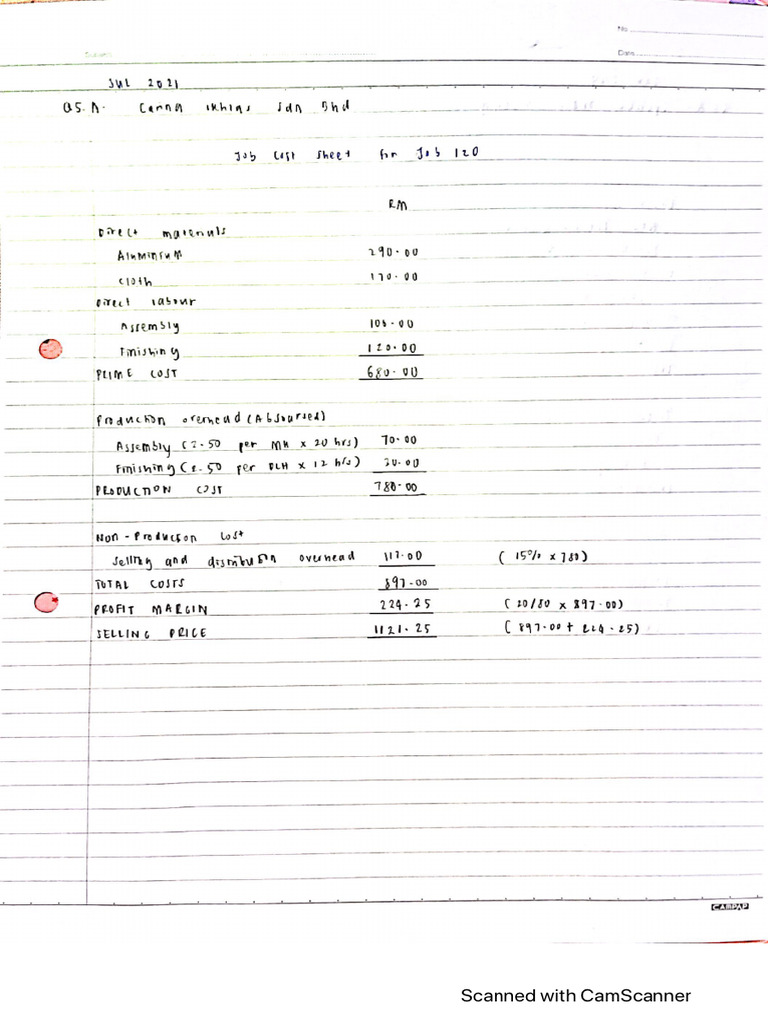 No
Date
JUL 2021
Q5. A. Canna Ikhlas Sdn Bhd
Job cost sheet for Job 120
RM
Direct materials
Aluminium 290.00
Cloth 170.00
Direct labour
Assembly 100.00
Finishing 120.00
PRIME COST 680.00
Production overhead (Absorbed)
Assembly (3.50 per MH x 20 hrs) 70.00
Finishing (2.50 per DLH x 12 hrs) 30.00
PRODUCTION COST 780.00
Non-Production cost
Selling and distribution overhead 117.00 (15% x 780)
TOTAL COSTS 897.00
PROFIT MARGIN 224.25 (20/80 x 897.00)
SELLING PRICE 1121.25 (897.00 + 224.25)
CAMPAP
Scanned with CamScanner